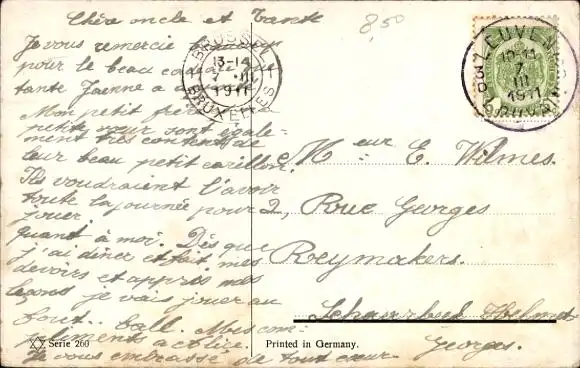 Chère oncle et Tante
8,50
Je vous remercie beaucoup
pour le beau cadeau que
tante Jeanne a
Mon petit frère
petite sœur sont égale-
ment très contents de
leur beau petit carillon.
Ils voudraient l'avoir
toute la journée pour
jouer
quant à moi. Dès que
j'ai dîner et fait mes
devoirs et appris mes
leçons je vais jouer au
foot-ball. Mes com-
pliments à
Je vous embrasse de tout cœur
Georges.
BRUSSEL
13-14
7 III
1911
BRUXELLES
LEUVEN
7
III
1911
LOUVAIN
Mr E. Wilmes.
2, Rue Georges
Reymakers.
Schaerbeek Helmet
Serie 260
Printed in Germany.